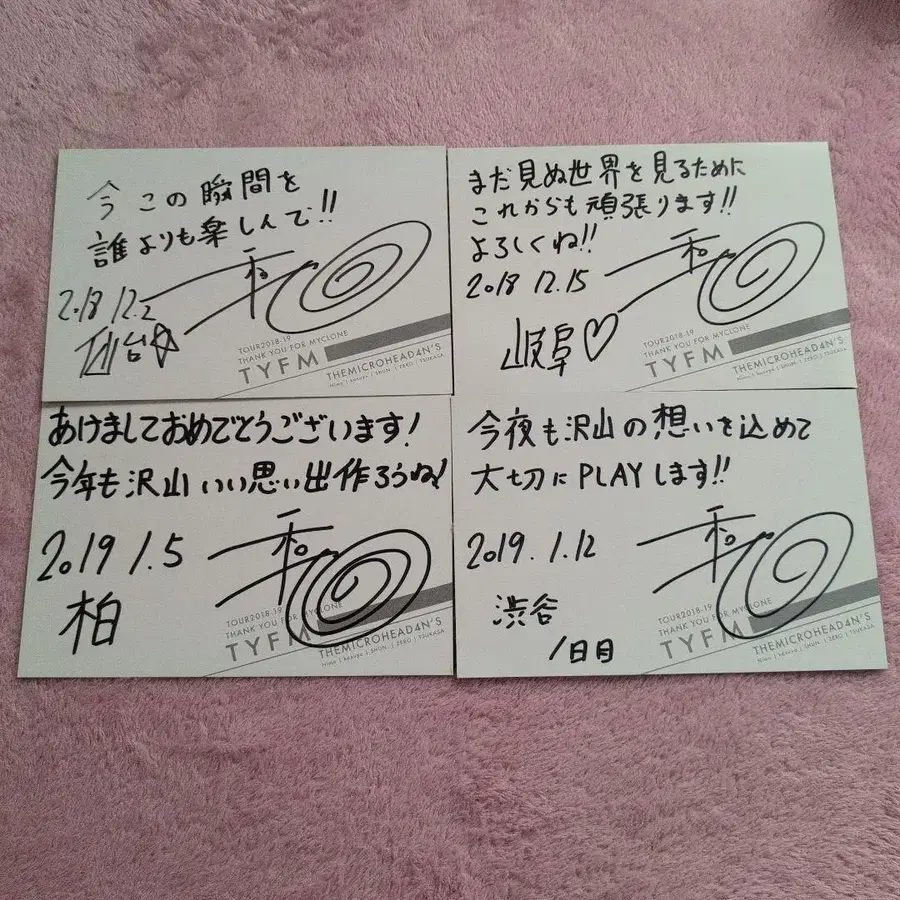 今この瞬間を
誰よりも楽しんで!!
2018 12.2
仙台☆
TOUR2018-19
THANK YOU FOR MYCLONE
TYFM
THEMICROHEAD4N'S
まだ見ぬ世界を見るために
これからも頑張ります!!
よろしくね!!
2018 12.15
岐阜♡
TOUR2018-19
THANK YOU FOR MYCLONE
TYFM
THEMICROHEAD4N'S
あけましておめでとうございます!
今年も沢山いい思い出作ろうね!
2019 1.5
柏
TOUR2018-19
THANK YOU FOR MYCLONE
TYFM
THEMICROHEAD4N'S
今夜も沢山の想いを込めて
大切にPLAYします!!
2019.1.12
渋谷
1日目
TOUR2018-19
THANK YOU FOR MYCLONE
TYFM
THEMICROHEAD4N'S